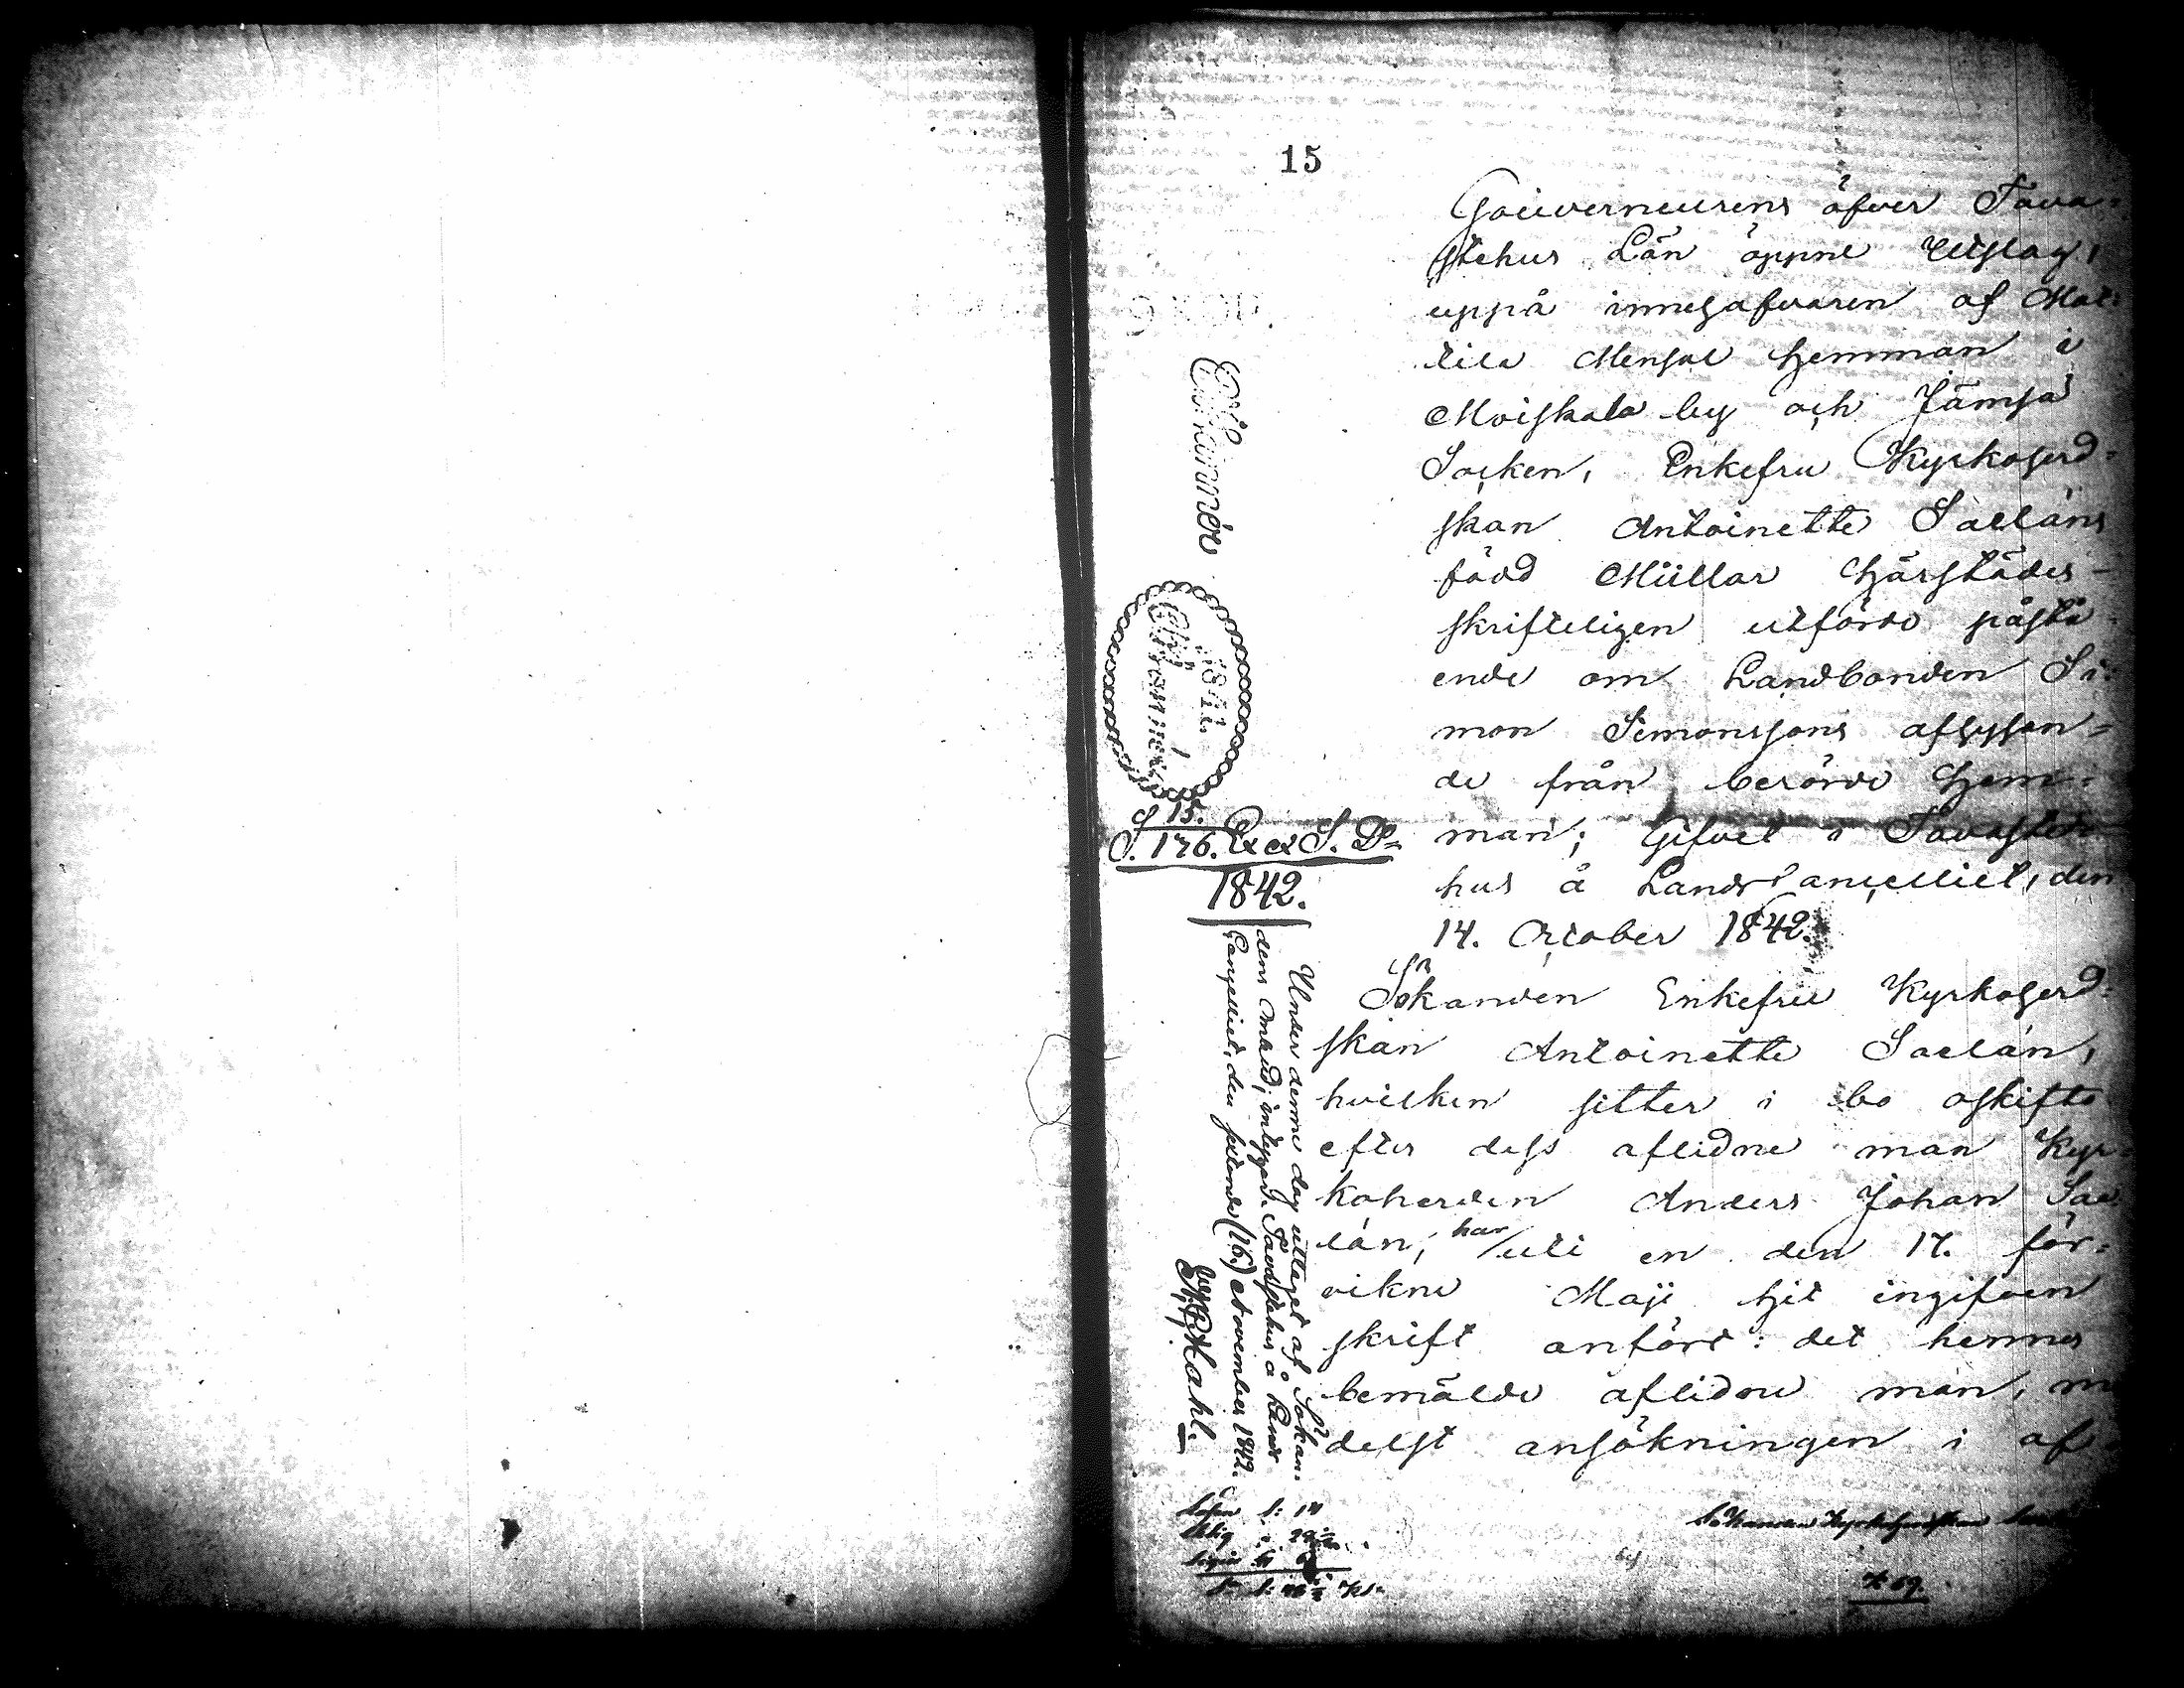 15
Gouverneurens öfver Tava-
stehus Län öppne Utslag,
uppå innehafvaren af Mat-
tila Mensal hemman i
Moiskala by och Jämsä
Socken, Enkefru Kyrkoherd-
skan Antoinette Saeläns
född Müllar härstädes
skrifteligen utförde påstå-
ende om Landbonden Si-
mon Simonssons afhysan-
de från berörde hem-
man; Gifvet i Tavaste-
hus å LandsCancelliet, den
14. October 1842.
Sökanden Enkefru Kyrkoherd-
skan Antoinette Saelän,
hvilken sitter i bo oskifto
efter dess aflidne man Kyr-
koherden Anders Johan Sae-
län, har uti en den 17. för-
vikne Maji hit ingifven
skrift anfört: det hennes
bemälde aflidne man, me
delst ansökningen i af-
1841.
S. 15.
S. 176. Ex ex S. D.
1842.
Under denne dag uttaget af Sökan-
dens Måud; intygar. Tavastehus å Lands
Cancelliet, den sextonde (16.) November 1842.
Sökanden Kyrkoherdskan
№ 69.